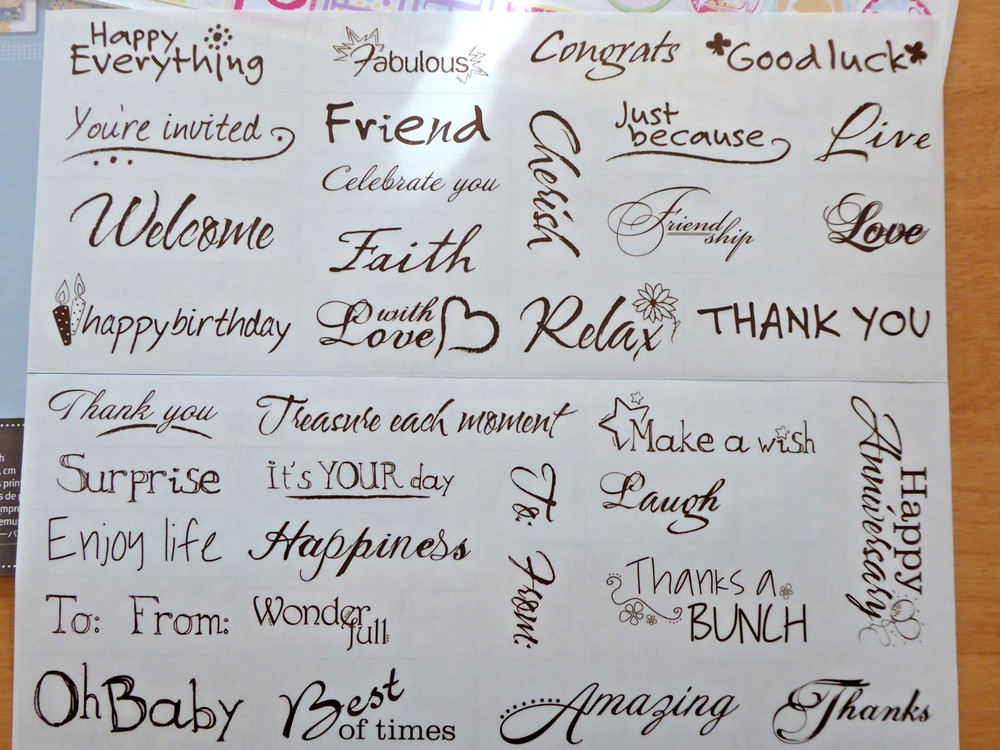 Happy
Everything
Fabulous
Congrats
Good luck
You're invited
Friend
Cherish
Just
because
Live
Celebrate you
Welcome
Faith
Friend
ship
Love
happy birthday
with
Love
Relax
THANK YOU
Thank you
Treasure each moment
Make a wish
Happy
Anniversary
Surprise
it's YOUR day
To: From:
Laugh
Enjoy life
Happiness
Thanks a
BUNCH
To: From:
Wonder
full
Oh Baby
Best
of times
Amazing
Thanks